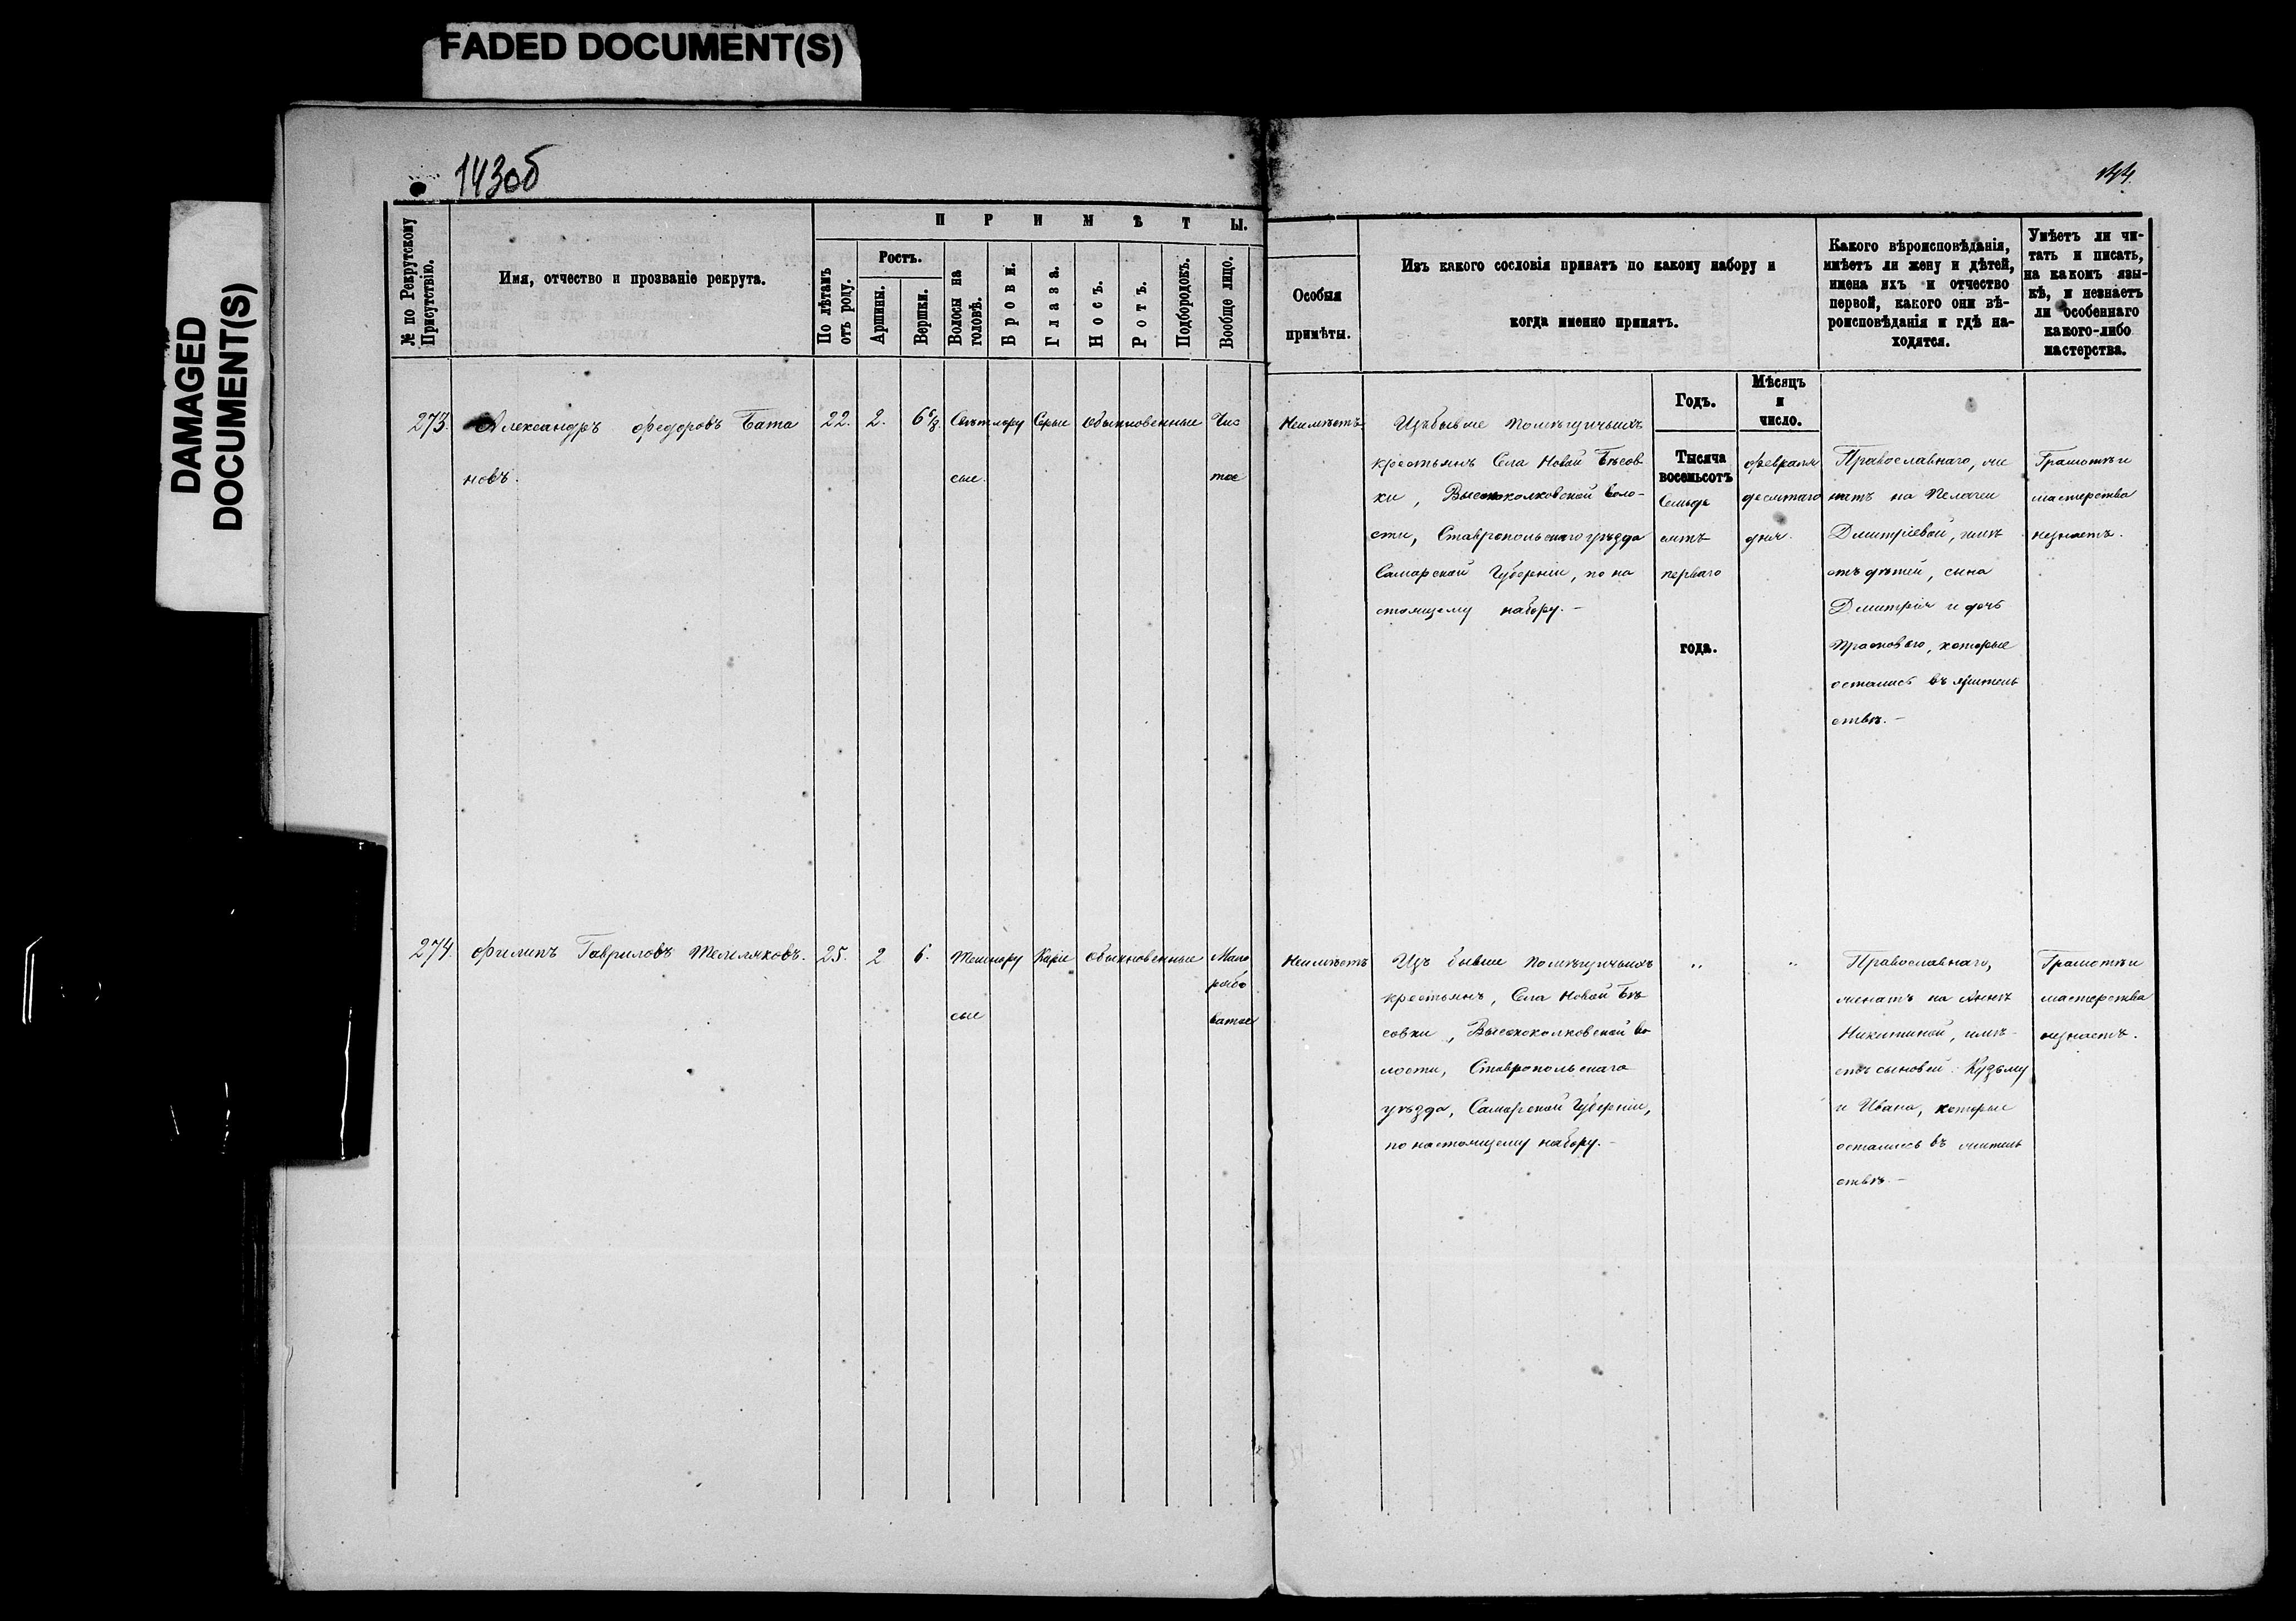 FADED DOCUMENT(S)
DAMAGED
DOCUMENT(S)
143об
144
№ по Рекрутскому
Присутствію.
Имя, отчество и прозваніе рекрута.
П Р И М Ѣ Т Ы.
По лѣтамъ
отъ роду.
Ростъ.
Аршины.
Вершки.
Волосы на
головѣ.
Брови.
Глаза.
Носъ.
Ротъ.
Подбородокъ.
Вообще лицо.
Особыя
примѣты.
Изъ какого сословія принятъ по какому набору и
когда именно принятъ.
Какого вѣроисповѣданія,
имѣетъ ли жену и дѣтей,
имена ихъ и отчество
первой, какого они вѣ-
роисповѣданія и гдѣ на-
ходятся.
Умѣетъ ли чи-
тать и писать,
на какомъ язы-
кѣ, и незнаетъ
ли особеннаго
какого-либо
мастерства.
Годъ.
Мѣсяцъ
и
число.
273. Александръ Федоровъ Бата
новъ.
22. 2. 6 Свѣтлору
сые.
Серые Обыкновенные Чис
тое
Неимѣетъ
Изъ бывше помѣщичьихъ
крестьянъ Села Новой Бѣсов
ки, Высококолковской воло-
сти, Ставропольскаго уѣзда
Самарской Губерніи, по на
стоящему набору. -
Тысяча
восемьсотъ
семьде
сятъ
перваго
года.
Февраля
десятаго
дня.
Православнаго, же
натъ на Пелагеи
Дмитріевой, имѣ
етъ дѣтей, сына
Дмитрія и дочь
Прасковью, которые
остались въ житель
ствѣ. -
Грамотѣ и
мастерства
незнаетъ.
274. Филипъ Гавриловъ
25. 2 6. Темнору
сые
Каріе Обыкновенные Мало
рябо
ватое
Неимѣетъ
Изъ бывше помѣщичьихъ
крестьянъ, Села Новой Бѣ
совки, Высококолковской во
лости, Ставропольскаго
уѣзда, Самарской Губерніи,
по настоящему набору. -
" "
Православнаго,
женатъ на Аннѣ
Никитиной, имѣ-
етъ сыновей Кузьму
и Ивана, которые
остались въ житель
ствѣ. -
Грамотѣ и
мастерства
незнаетъ.